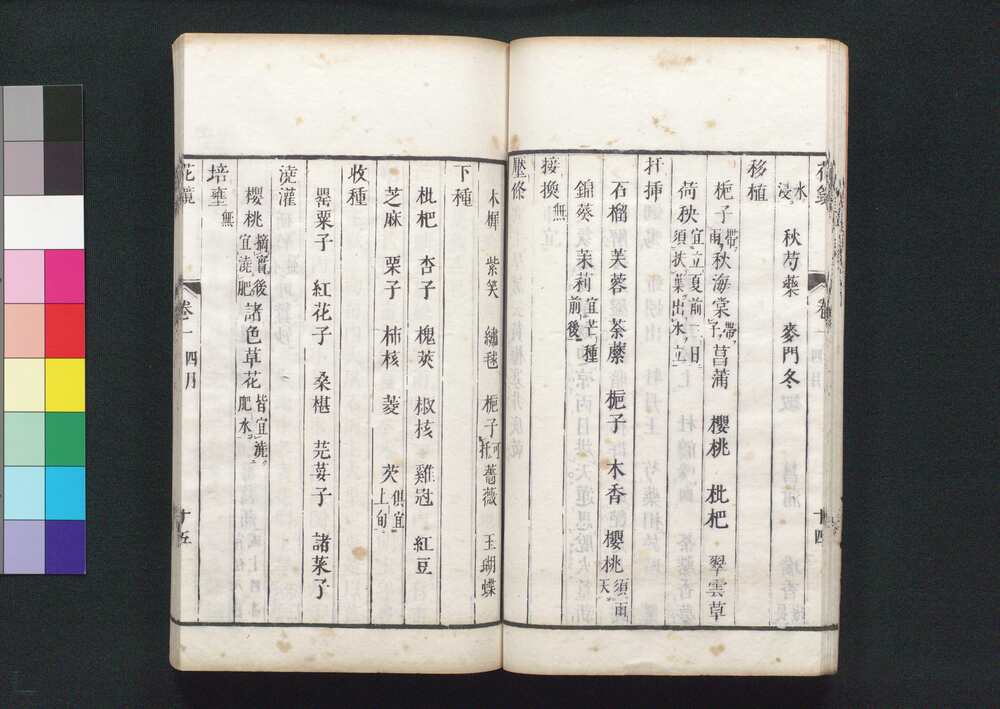 花鏡 卷一 十四
水浸 秋芍藥 麥門冬
移植
梔子帶雨 秋海棠帶子 菖蒲 櫻桃 枇杷 翠雲草
荷秧宜立夏前三日須扶葉出水立
扦插
石榴 芙蓉 荼蘼 梔子 木香 櫻桃須雨天
錦葵 茉莉宜芒種前後
接換無
壓條
木樨 紫笑 繡毬 梔子可扦 薔薇 玉蝴蝶
下種
枇杷 杏子 槐莢 椒核 雞冠 紅豆
芝麻 栗子 柿核 菱 芡俱宜上旬
收種
罌粟子 紅花子 桑椹 芫荽子 諸菜子
澆灌
櫻桃摘實後宜澆肥 諸色草花皆宜澆肥水
培壅無
花鏡 卷一 四月 十五